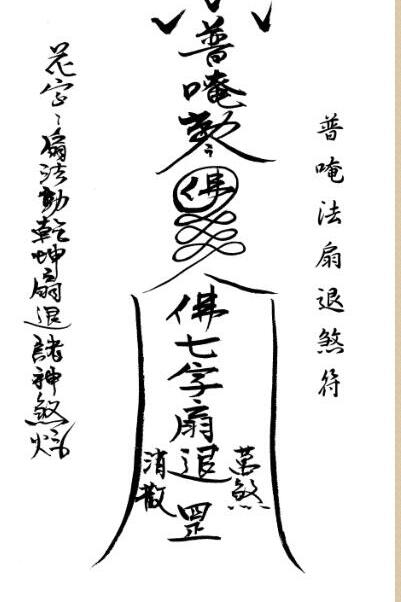 普唵法扇退煞符
普唵勅令
佛
佛七字扇退罡
萬煞
消散
花字字扇法動乾坤扇退諸神煞